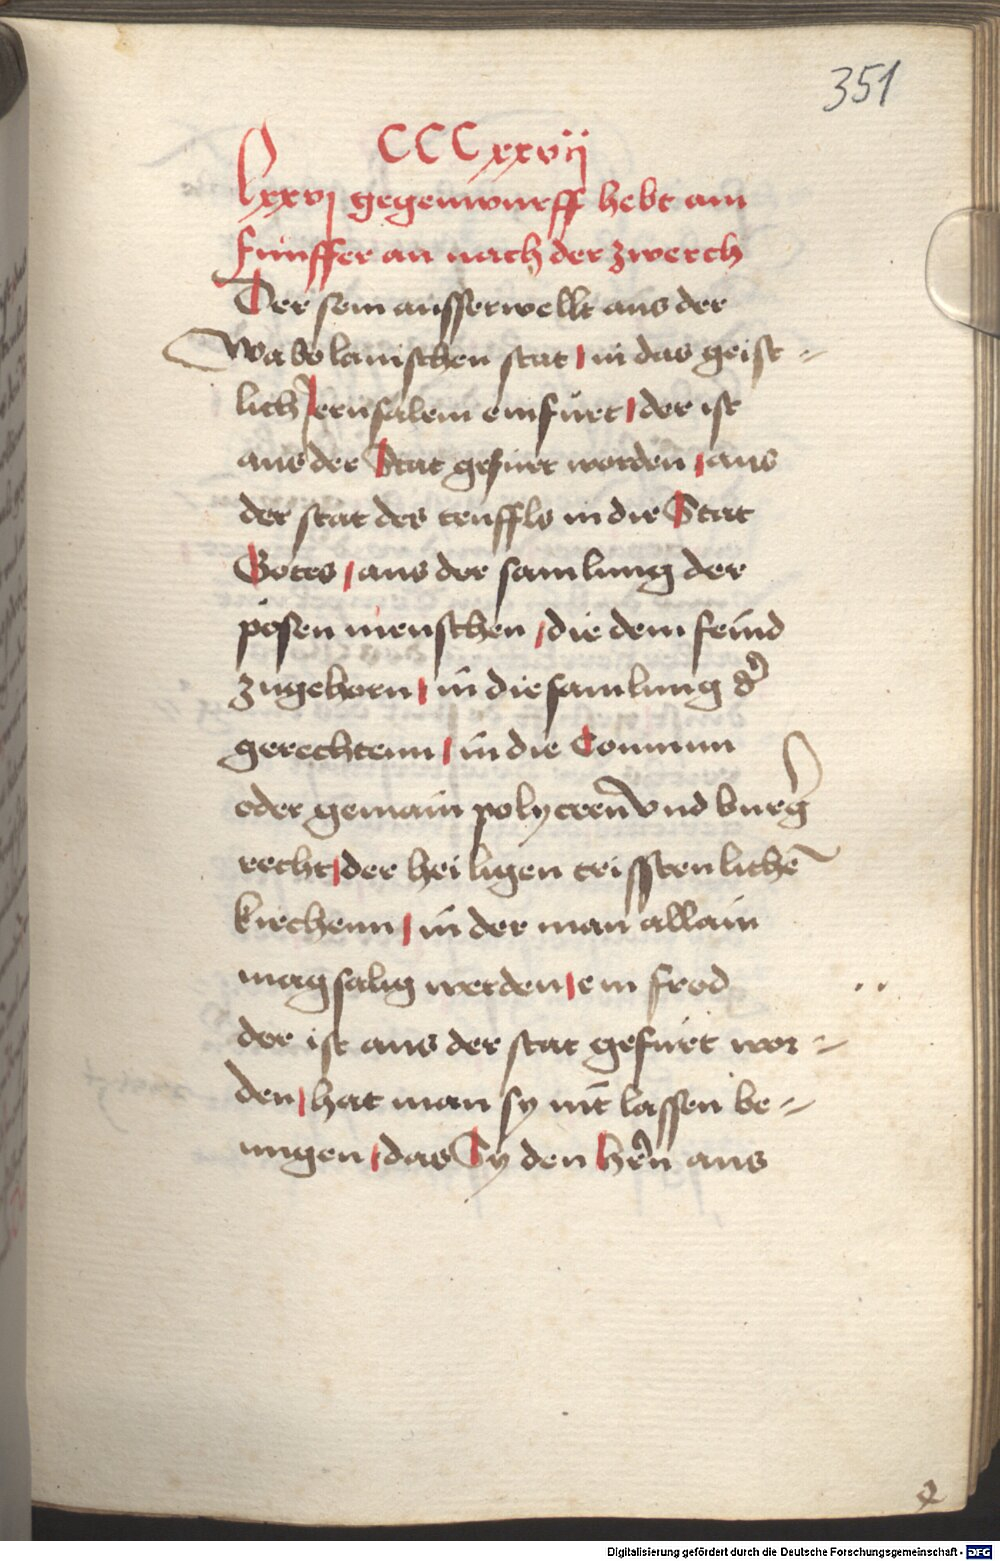 351
CCCxxvij
lxxvj gegenwurff hebt am
fünffer an nach der zwerch
Der sein ausserwellt aus der
Wabolanischen stat in das geist=
lich Jerusalem einfürt der ist
aus der Stat gefürt worden aus
der stat des teuffls in die Stat
Gotes aus der samlung der
pösen menschen die dem feind
zugehorn in die samlung dʼ
gerechtenn in die Commun
oder gemain polyceen vnd burgʼ
recht der heiligen cristenlichē
kirchenn in der man allain
mag salig werden ein frod
der ist aus der stat gefürt wor=
den hat man sy nit lassen be=
nngen das Sy den hrn̄ aus
Digitalisierung gefördert durch die Deutsche Forschungsgemeinschaft - DFG